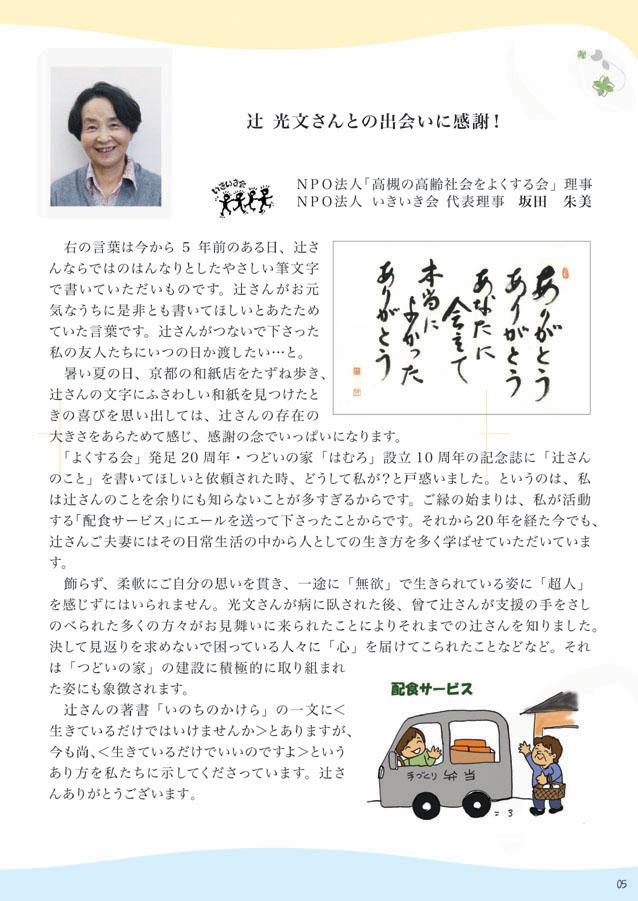 辻 光文さんとの出会いに感謝！
いきいき会
NPO法人「高槻の高齢社会をよくする会」理事
NPO法人 いきいき会 代表理事 坂田 朱美
右の言葉は今から 5 年前のある日、辻さ
んならではのはんなりとしたやさしい筆文字
で書いていただいものです。辻さんがお元
気なうちに是非とも書いてほしいとあたため
ていた言葉です。辻さんがつないで下さった
私の友人たちにいつの日か渡したい…と。
暑い夏の日、京都の和紙店をたずね歩き、
辻さんの文字にふさわしい和紙を見つけたと
きの喜びを思い出しては、辻さんの存在の
大きさをあらためて感じ、感謝の念でいっぱいになります。
ありがとう
ありがとう
あなたに
会えて
本当に
よかった
ありがとう
「よくする会」発足 20 周年・つどいの家「はむろ」設立 10 周年の記念誌に「辻さん
のこと」を書いてほしいと依頼された時、どうして私が？と戸惑いました。というのは、私
は辻さんのことを余りにも知らないことが多すぎるからです。ご縁の始まりは、私が活動
する「配食サービス」にエールを送って下さったことからです。それから20年を経た今でも、
辻さんご夫妻にはその日常生活の中から人としての生き方を多く学ばせていただいていま
す。
飾らず、柔軟にご自分の思いを貫き、一途に「無欲」で生きられている姿に「超人」
を感じずにはいられません。光文さんが病に臥された後、曾て辻さんが支援の手をさし
のべられた多くの方々がお見舞いに来られたことによりそれまでの辻さんを知りました。
決して見返りを求めないで困っている人々に「心」を届けてこられたことなどなど。それ
は「つどいの家」の建設に積極的に取り組まれ
た姿にも象徴されます。
辻さんの著書「いのちのかけら」の一文に＜
生きているだけではいけませんか＞とありますが、
今も尚、＜生きているだけでいいのですよ＞という
あり方を私たちに示してくださっています。辻さ
んありがとうございます。
配食サービス
手づくり 弁当
05